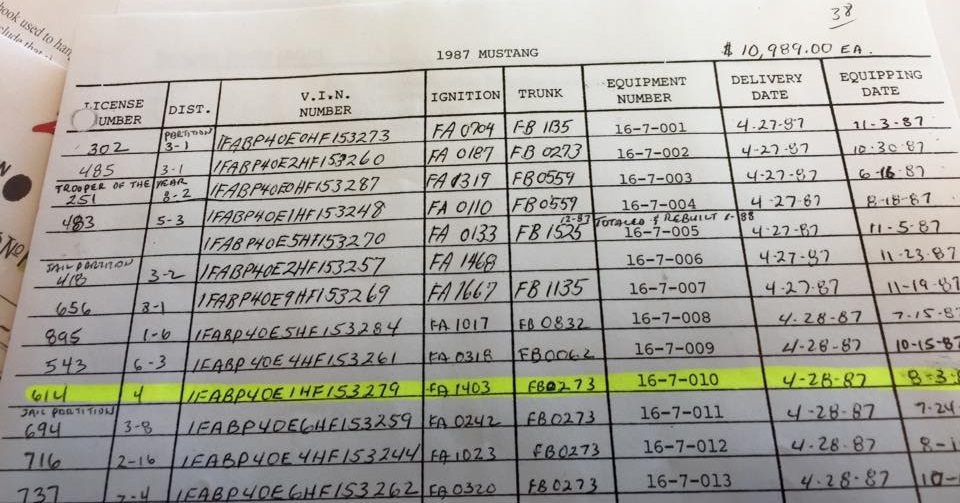 ook used to han
clude that
38
1987 MUSTANG $10,989.00 EA.
LICENSE NUMBER DIST. V.I.N. NUMBER IGNITION TRUNK EQUIPMENT NUMBER DELIVERY DATE EQUIPPING DATE
PARTITION
302 3-1 1FABP40E0HF153273 FA 0704 FB 1135 16-7-001 4-27-87 11-3-87
485 3-1 1FABP40E2HF153260 FA 0187 FB 0273 16-7-002 4-27-87 10-30-87
TROOPER OF THE YEAR
251 8-2 1FABP40E0HF153287 FA 1319 FB0559 16-7-003 4-27-87 6-16-87
483 5-3 1FABP40E1HF153248 FA 0110 FB0559 16-7-004 4-27-87 8-18-87
12-87 TOTALED & REBUILT 1-88
1FABP40E5HF153270 FA 0133 FB 1525 16-7-005 4-27-87 11-5-87
JAIL PARTITION
418 3-2 1FABP40E2HF153257 FA 1468 16-7-006 4-27-87 11-23-87
656 3-1 1FABP40E9HF153269 FA 1667 FB 1135 16-7-007 4-27-87 11-19-87
895 1-6 1FABP40E5HF153284 FA 1017 FB 0832 16-7-008 4-28-87 7-15-8
543 6-3 1FABP40E4HF153261 FA 0318 FB0062 16-7-009 4-28-87 10-15-8
614 4 1FABP40E1HF153279 FA 1403 FB0273 16-7-010 4-28-87 8-3-8
JAIL PARTITION
694 3-8 1FABP40E6HF153259 FA 0242 FB0273 16-7-011 4-28-87 7-24-
716 2-16 1FABP40E4HF153244 FA 1023 FB0273 16-7-012 4-28-87 8-1
737 2-4 1FABP40E6HF153262 FA 0320 FB0273 16-7-013 4-28-87 10-